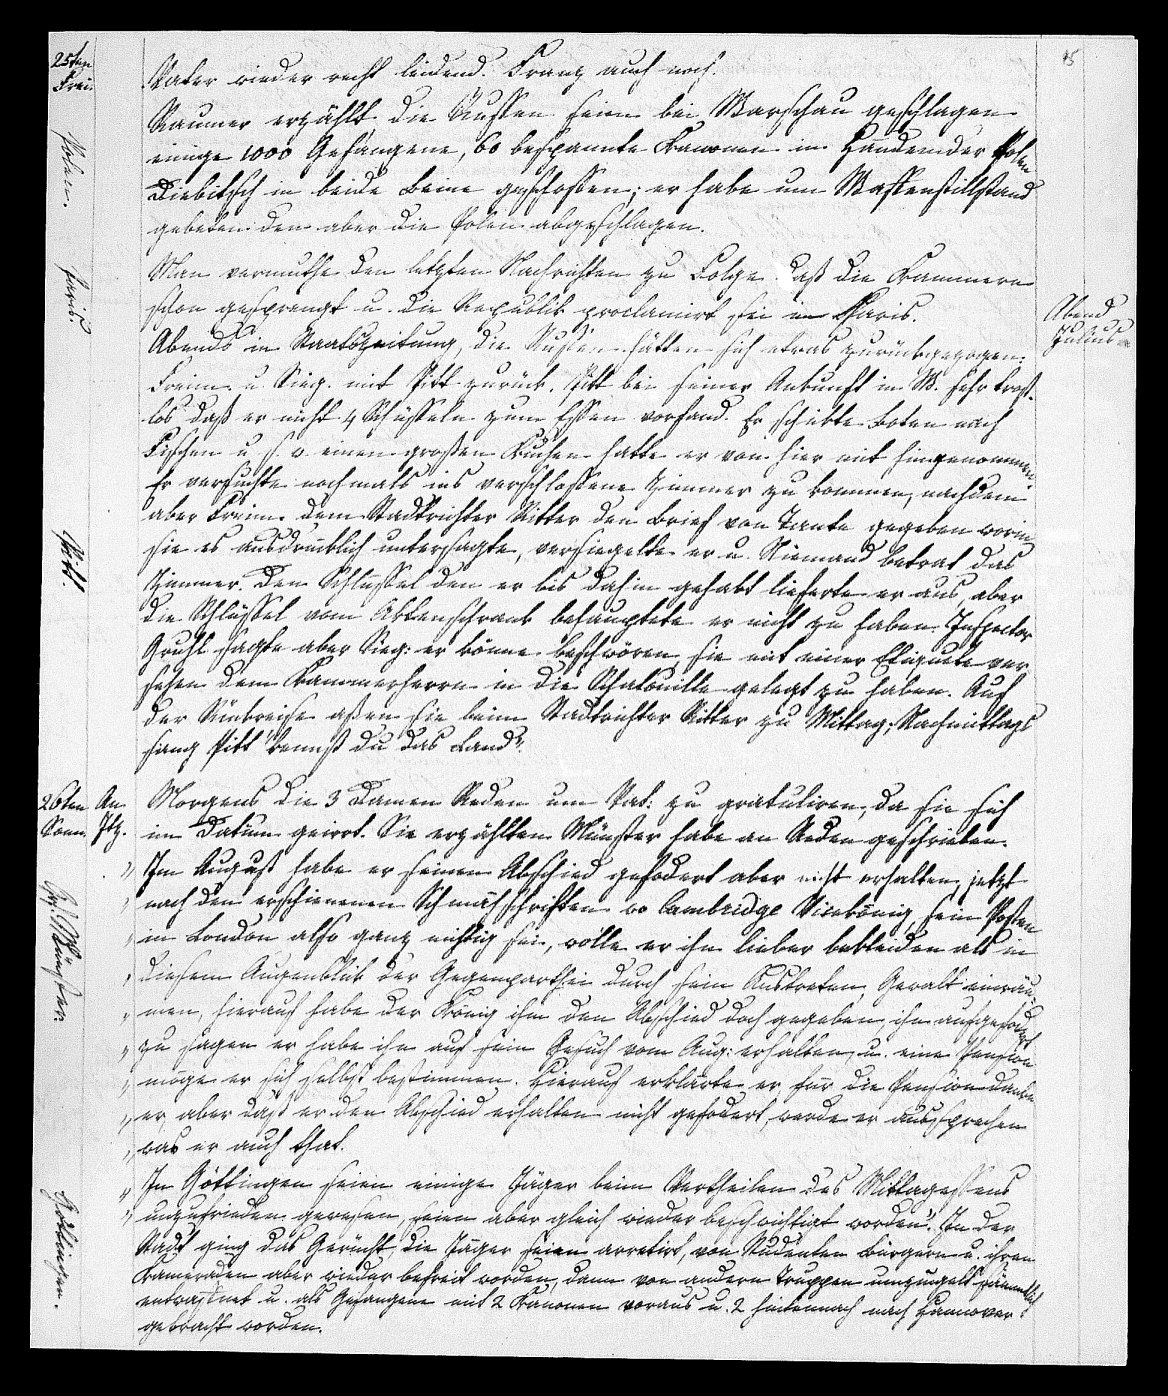 25ten
Frei.
Vater wieder recht leidend. Franz auch noch.
Raumer erzählt die Russen seien bei Warschau geschlagen
einige 1000 Gefangene, 60 bespannte Kanonen in Händen der Polen
Diebitsch in beide Beine geschossen; er habe um Waffenstillstand
gebeten den aber die Polen abgeschlagen.
Polen.
Paris.
Man vermuthe den letzten Nachrichten zu Folge. daß die Kammern
schon gesprengt u. die Republik proclamirt sei in Paris.
Abends in Staatszeitung, die Russen hätten sich etwas zurückgezogen.
Abend
Julius
Freim. u Sieg. mit Pitt zurück. Pitt bei seiner Ankunft in W. sehr trost-
los daß er nicht 4 Schüsseln zum Essen vorfand. Er schikte Boten nach
Fischen u s. w. einen großen Kuchen hatte er von hier mit hingenommen.
Er versuchte nochmals ins verschlossene Zimmer zu kommen, nachdem
aber Freim. dem Stadtrichter Ritter den Brief von Tante gegeben worin
sie es ausdrücklich untersagte, versiegelte er u. Niemand betrat das
Pitt.
Zimmer. Den Schlüssel den er bis dahin gehabt lieferte er aus, aber
die Schlüssel vom Aktenschrank behauptete er nicht zu haben. Inspector
Gruhl sagte aber Sieg: er könne beschwören, sie mit einer Etiquete ver
sehen dem Kammerherrn in die Schatouille gelegt zu haben. Auf
der Rückreise aßen sie beim Stadtrichter Ritter zu Mittag; Nachmittags
sang Pitt "kennst du das Land".
26ten
Sonn.
An
Itz.
Morgens die 3 Damen Reden um Vat: zu gratuliren, da sie sich
im Datum geirrt. Sie erzählten Münster habe an Reden geschrieben.
"Im August habe er seinen Abschied gefodert aber nicht erhalten, jetzt
nach den erschienenen Schmähschriften wo Cambridge Vicekönig, sein Posten
in London also ganz nichtig sei, wolle er ihn lieber bekleiden als in
diesem Augenblick der Gegenparthei durch sein Austreten Gewalt einräu-
Münster.
men, hierauf habe der König ihm den Abschied doch gegeben, ihn aufgefodert
zu sagen er habe ihn auf sein Gesuch vom Aug: erhalten, u. eine Pension
möge er sich selbst bestimmen. Hierauf erklärte er für die Pension danke
er, aber daß er den Abschied erhalten nicht gefodert, werde er aussprechen
was er auch that.
Göttingen.
In Göttingen seien einige Jäger beim Vertheilen des Mittagessens
unzufrieden gewesen, seien aber gleich wieder beschwichtigt worden". In der
Stadt ging das Gerücht, die Jäger seien arretirt, von Studenten Bürgern u. ihren
Kameraden aber wieder befreit worden, dann von andern Truppen umzingelt sämmtlich
entwaffnet u. als Gefangene mit 2 Kanonen voraus u. 2 hintennach nach Hannover
gebracht worden.